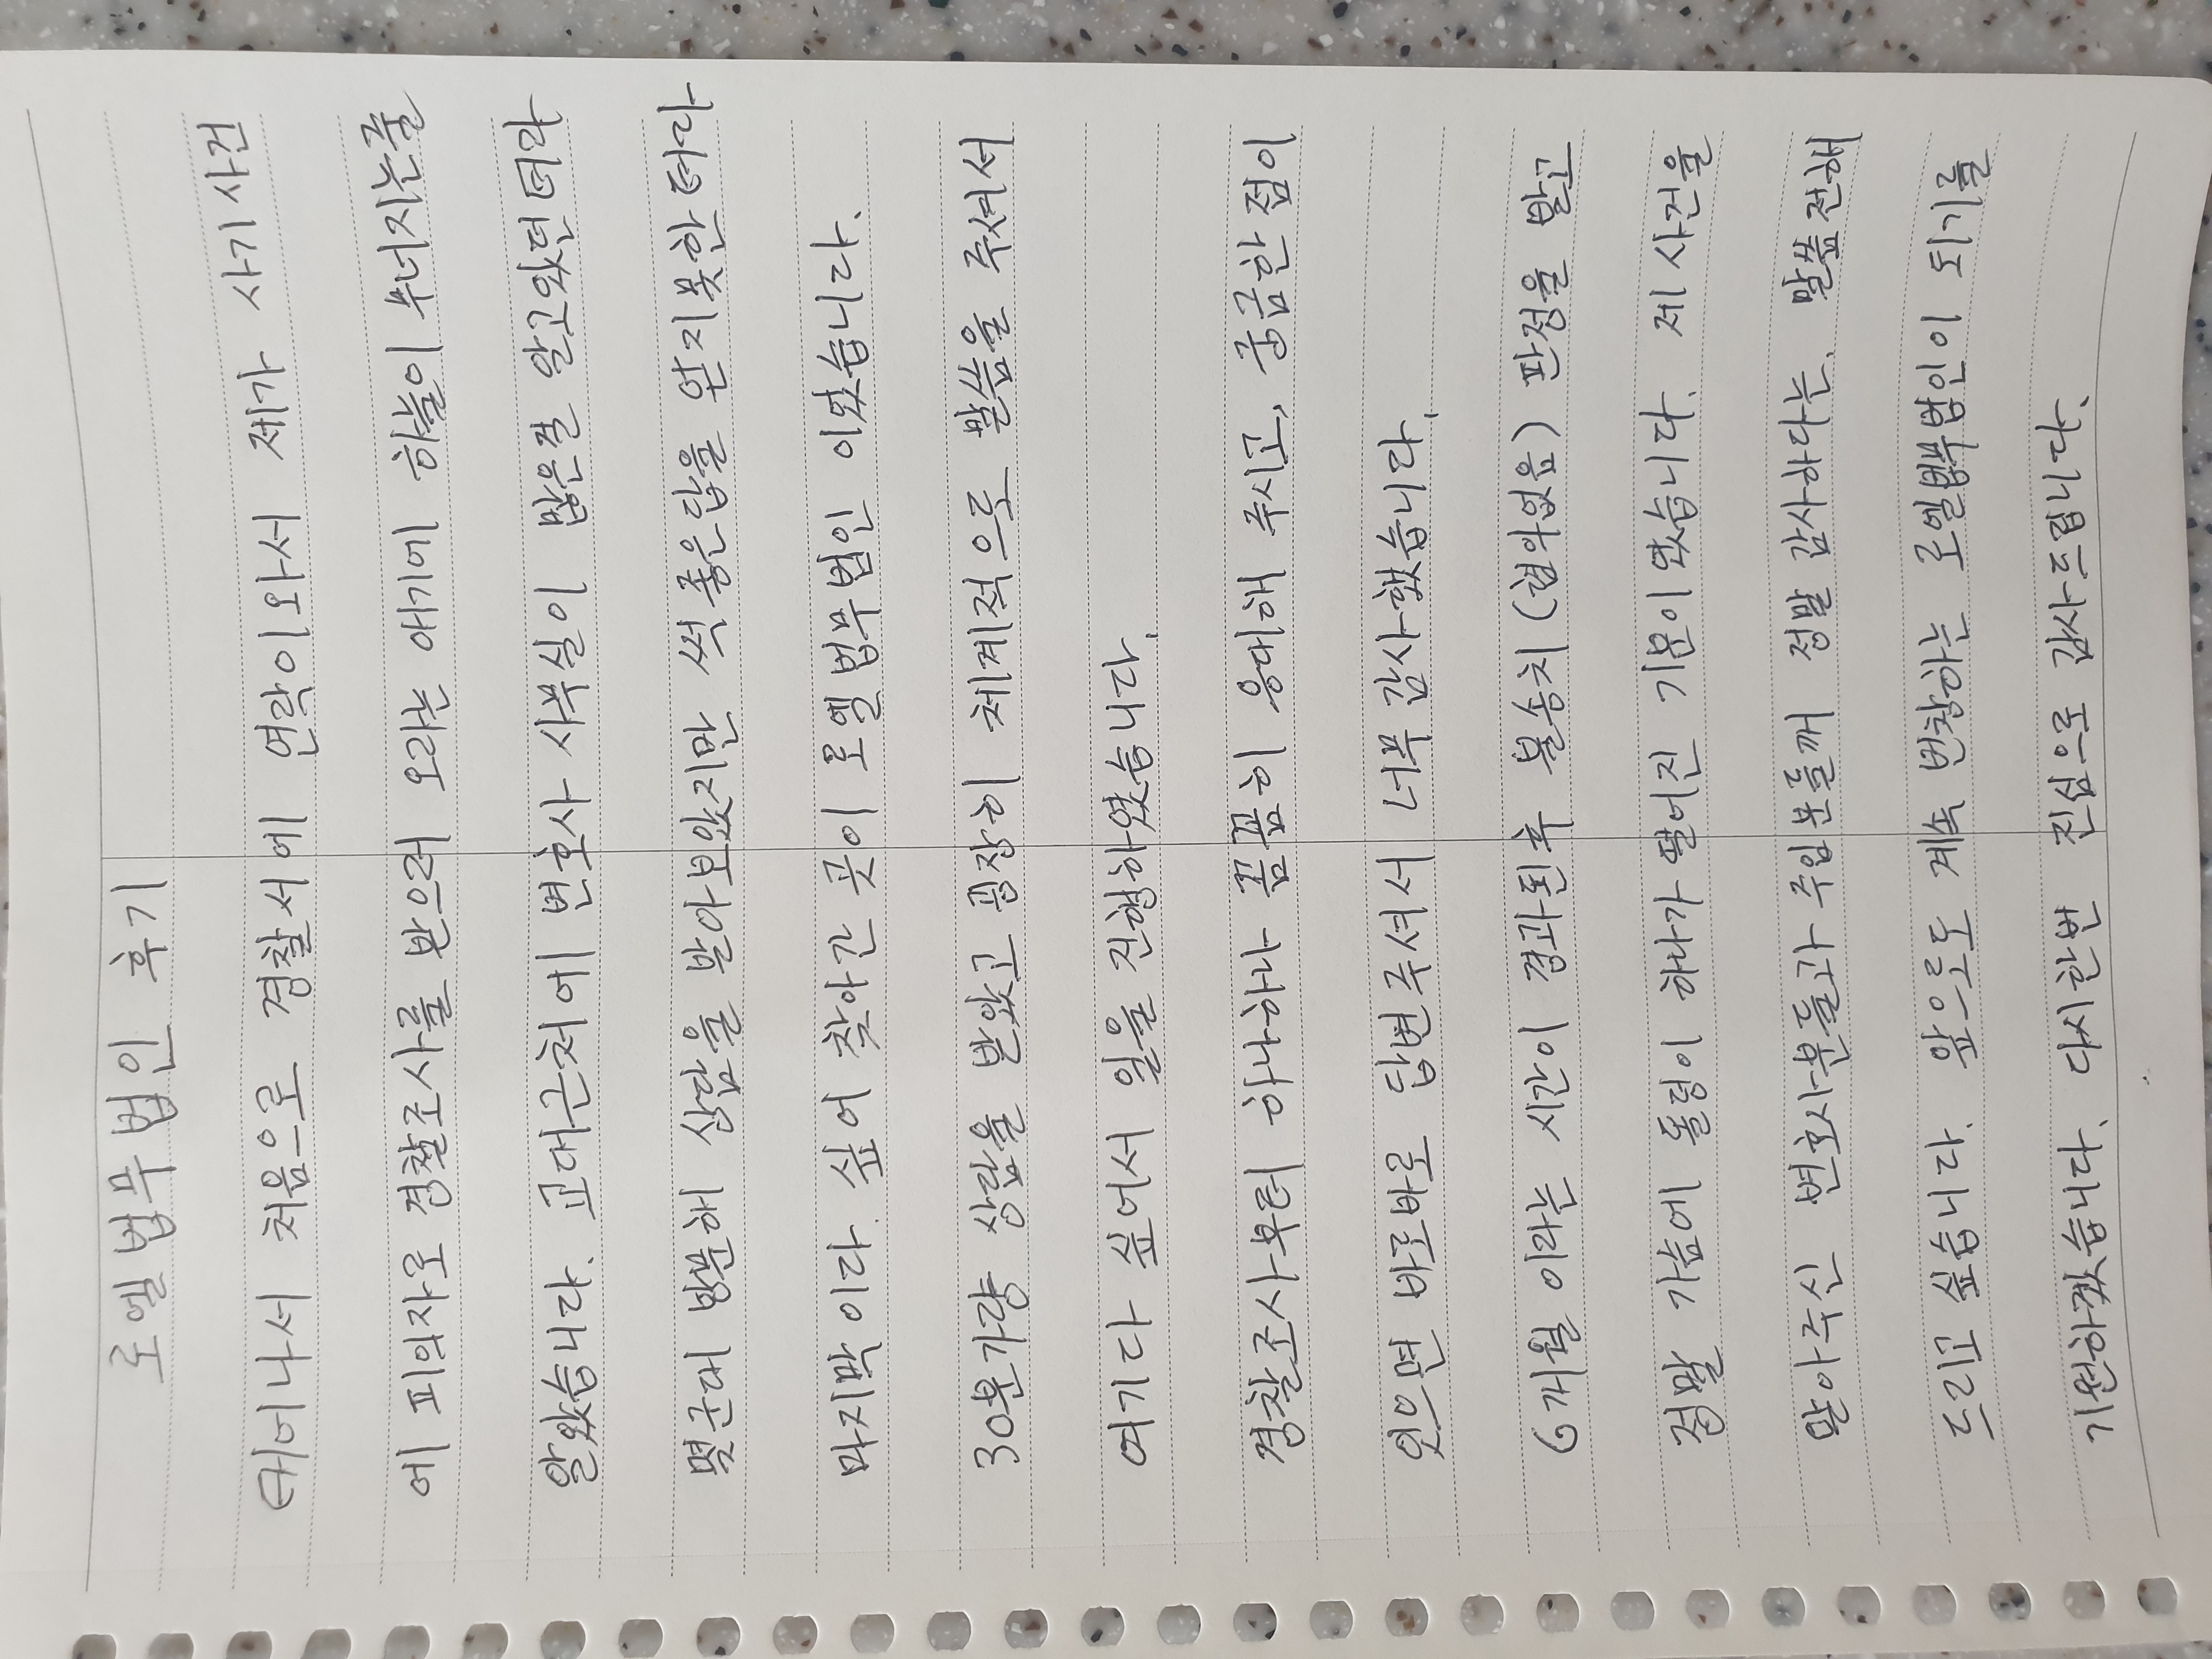 로엘 법무법인 후기
태어나서 처음으로 경찰서에 연락이와서 제가 사기사건
에 피의자로 경찰조사를 받으러 오라는 얘기에 하늘이 무너지는줄
알았습니다. 교대근처에 변호사 사무실이 많은걸 알고있던터라
몇군대 방문해 상담을 받아보았지만 썩 좋은답을 얻지못한터다
마지막이다 싶어 찾아간 곳이 로엘 법무법인 이였습니다.
30분가량 상담을 받았고 굉장히 체계적으로 말씀을 주셔서
여기다 싶어서 일을 진행하였습니다.
경찰조사부터 하나하나 꼼꼼히 응대해 주시고, 궁금한점이
있으면 바로바로 답변주셔서 너무 감사했습니다.
6개월 이라는 시간이 경과된후 불송치(혐의없음) 판정을 받고
정말 가슴에 돌덩이 하나가 떨어진 기분이였습니다. 제 사건을
맡아주신 변호사분들과 주임분들께 정말 감사하다는. 말씀전해
드리고 싶습니다. 앞으로도 계속 번창하는 로엘법무법인이 되기를
기원하겠습니다. 다시한번 진심으로 감사드립니다.